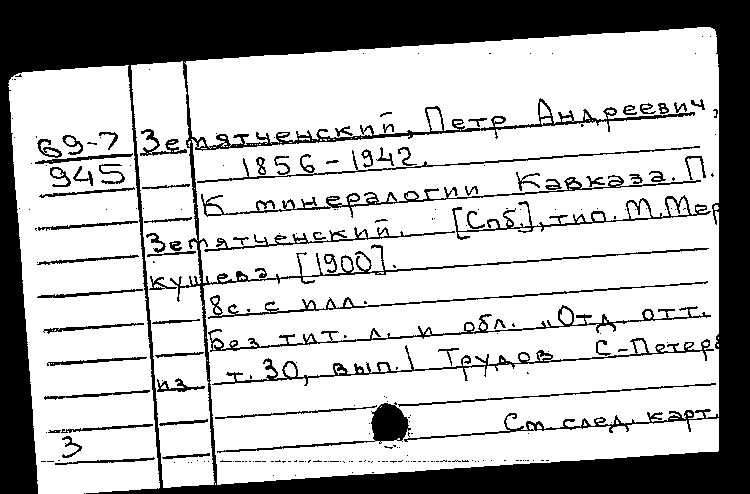 69-7 Земятченский, Петр Андреевич,
945 1856-1942.
К минералогии Кавказа. П.
Земятченский. [Спб.], тип. М. Мер
кушева, [1900].
8с. с илл.
Без тит. л. и обл. „Отд. отт.
из т. 30, вып. 1 Трудов С-Петерб
3 См. след. карт.